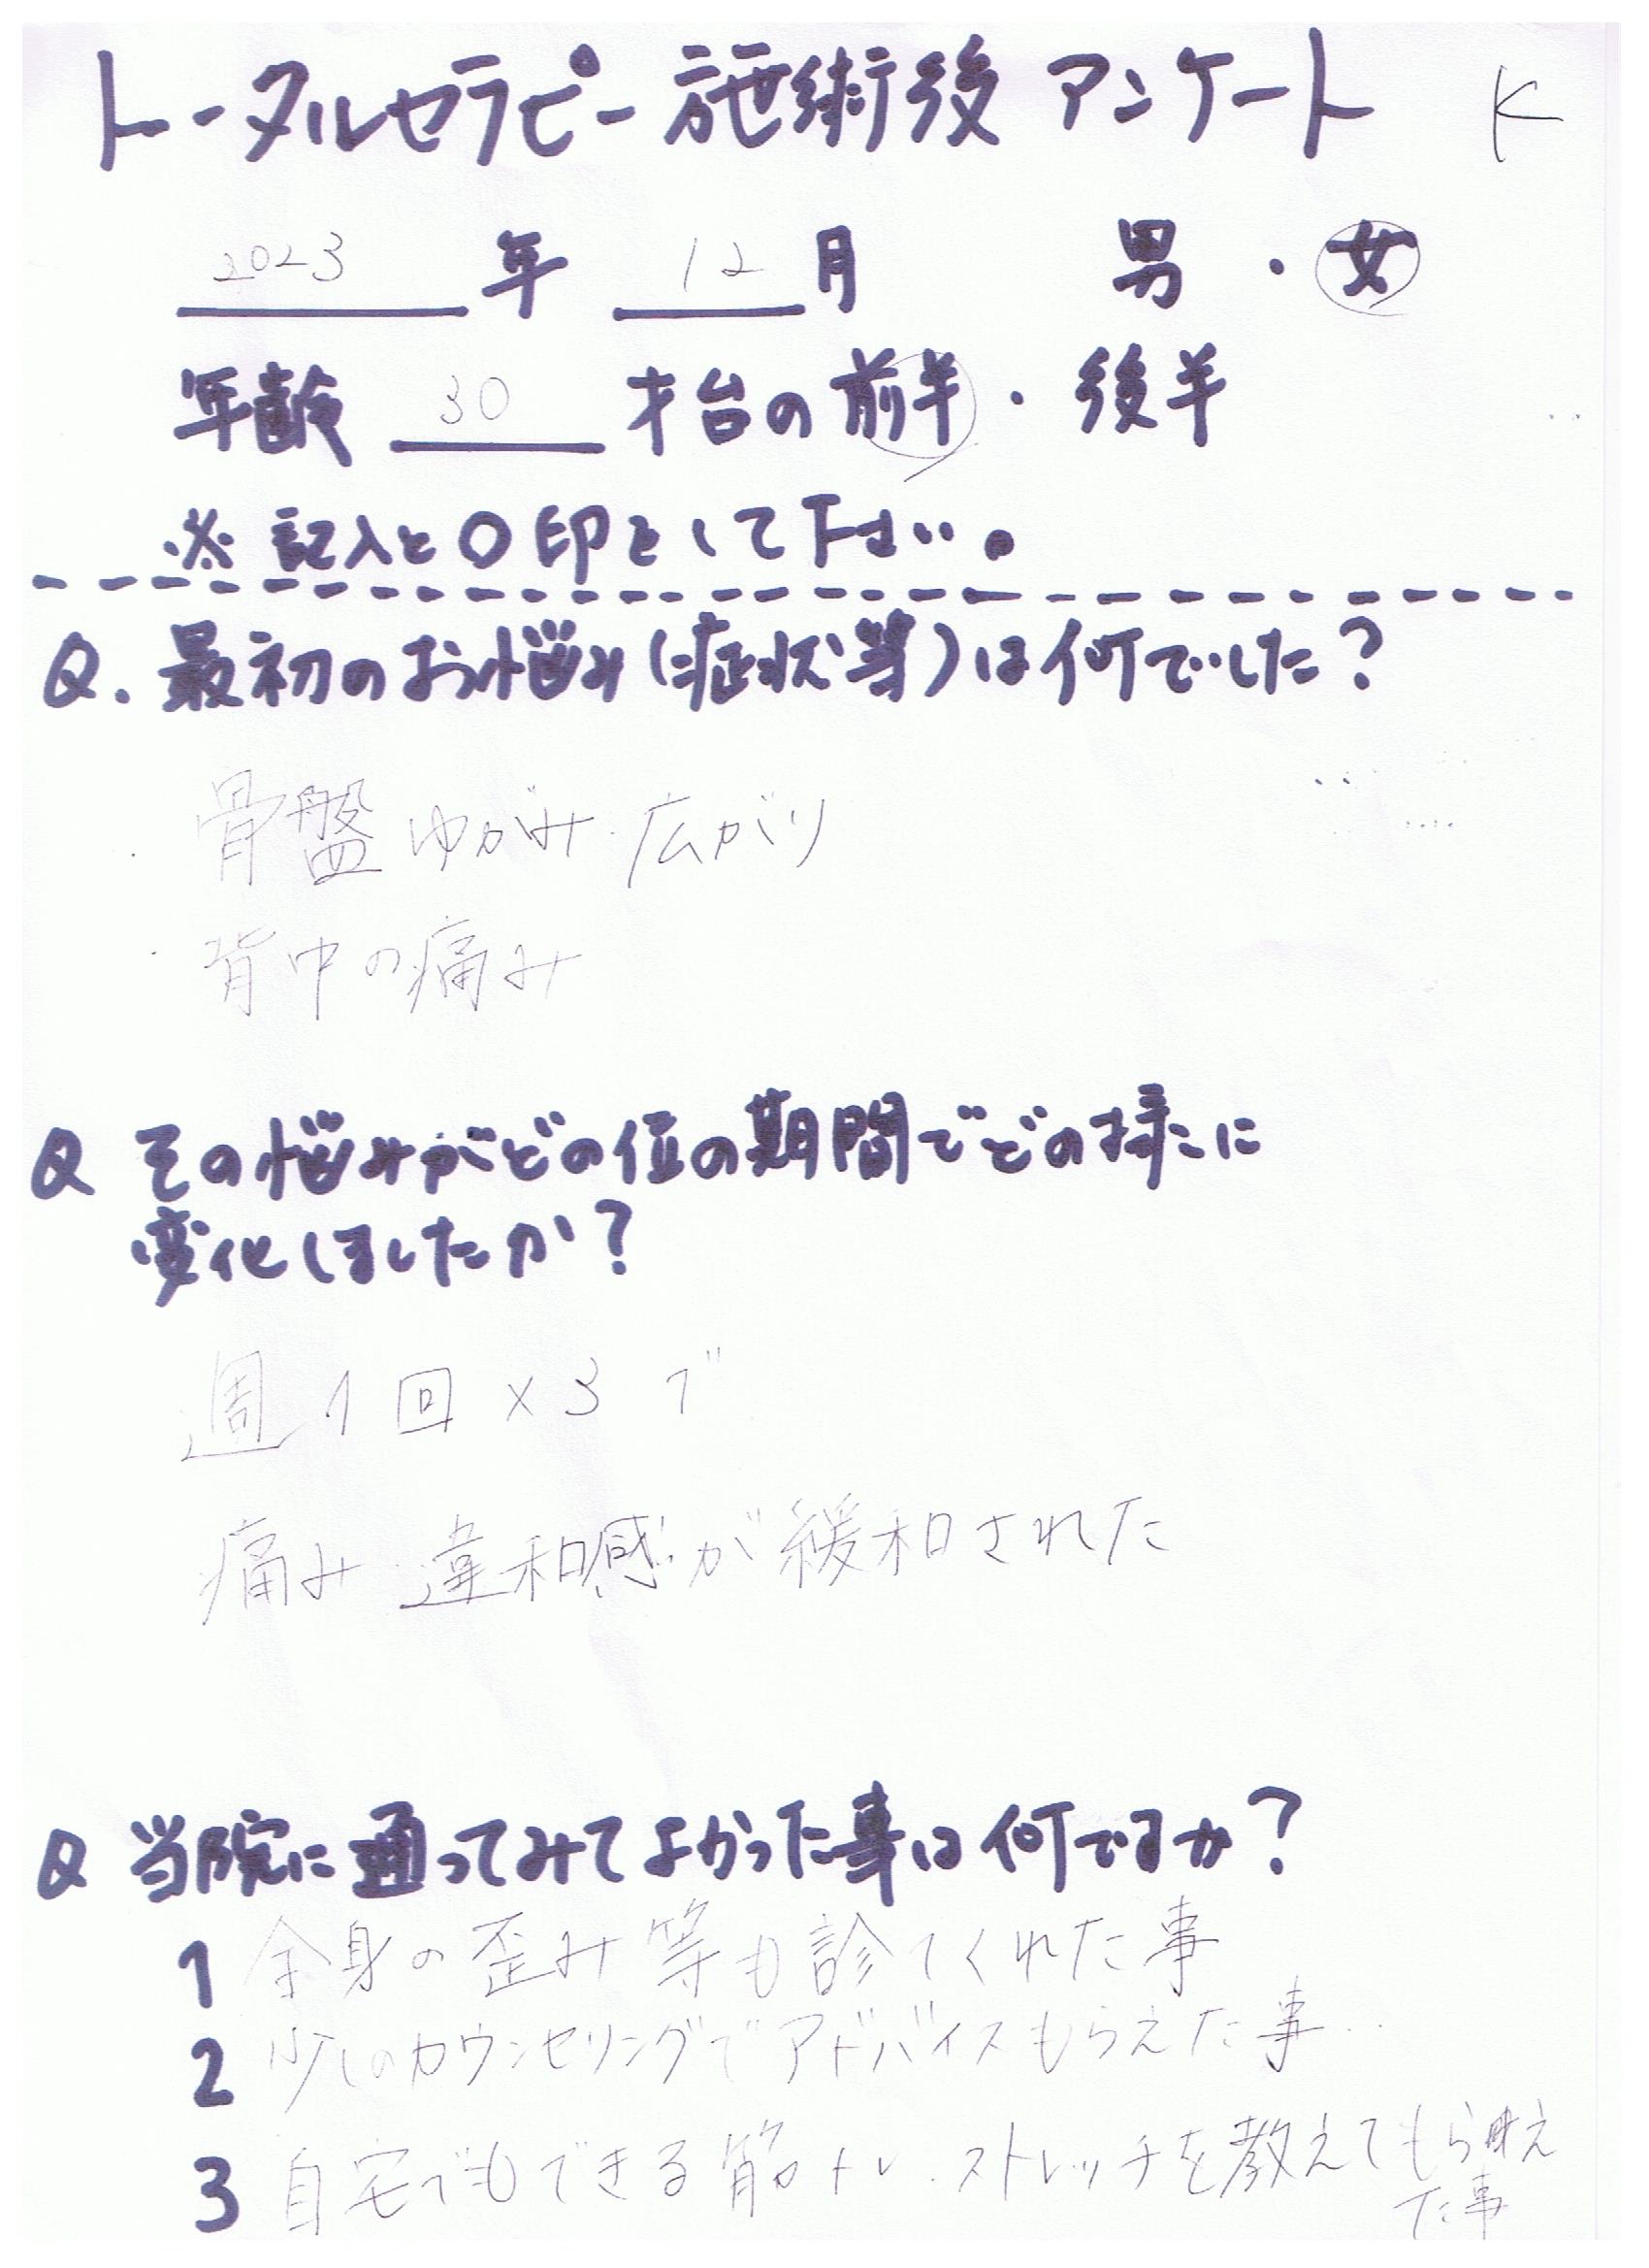 トータルセラピー施術後 アンケート K
2023 年 12 月 男・女
年齢 30 才台の前半・後半
※記入と○印をして下さい。
Q. 最初のお悩み(症状等)は何でした?
・骨盤ゆがみ・広がり
・背中の痛み
Q その悩みがどの位の期間でどの様に
変化しましたか?
週1回×3で
痛み・違和感が緩和された
Q 当院に通ってみてよかった事は何ですか?
1 全身の歪み等も診てくれた事
2 少しのカウンセリングでアドバイスもらえた事..
3 自宅でもできる筋トレ.ストレッチを教えてもらえ
た事